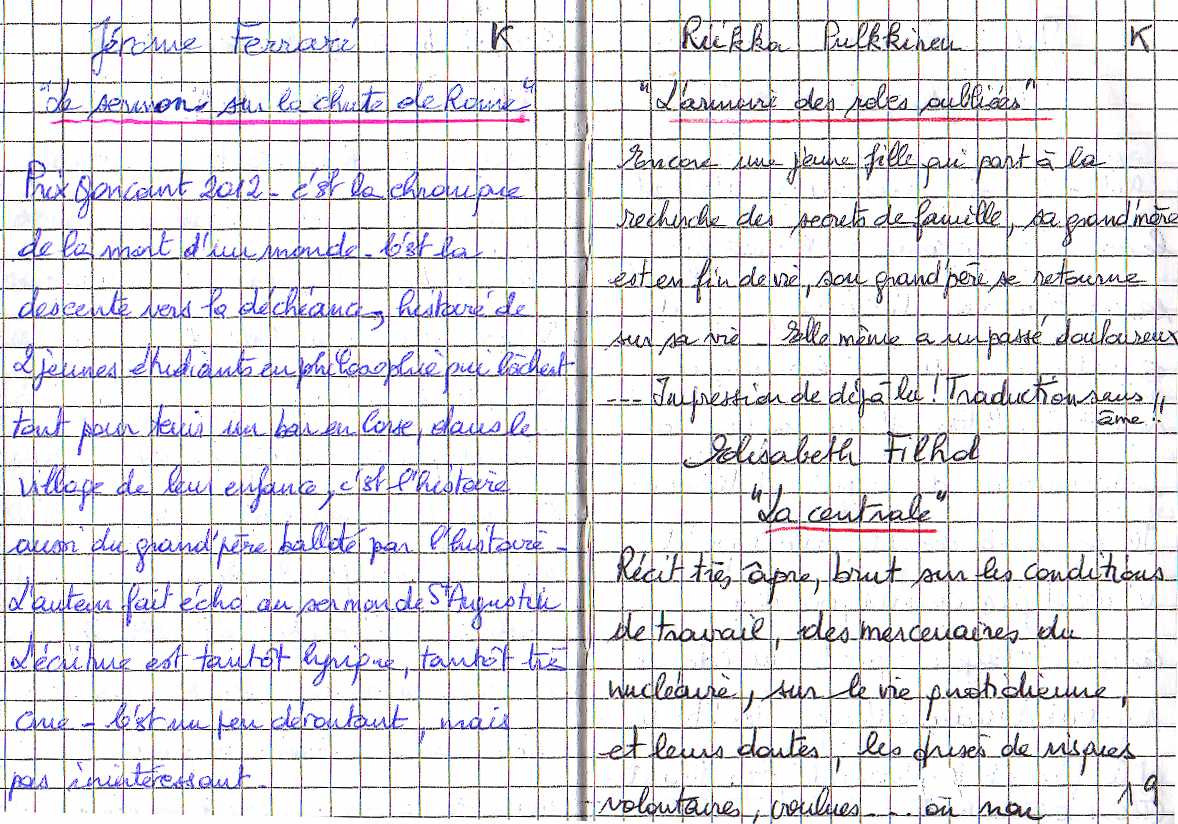 Jérome Ferrari K
"Le sermon" sur la chute de Rome"
Prix Goncourt 2012 - c'est la chronique
de la mort d'un monde. C'est la
descente vers la déchéance, histoire de
2 jeunes étudiants en philosophie qui lâchent
tout pour tenir un bar en Corse, dans le
village de leur enfance, c'est l'histoire
aussi du grand'père balloté par l'histoire -
L'auteur fait écho au sermon de St Augustin
L'écriture est tantôt lyrique, tantôt très
crue - C'est un peu déroutant, mais
pas inintéressant.
Riikka Pulkkinen K
"L'armoire des robes oubliées"
Encore une jeune fille qui part à la
recherche des secrets de famille, sa grand'mère
est en fin de vie, son grand'père se retourne
sur sa vie - Elle même a un passé douloureux
--- Impression de déjà lu ! Traduction sans
âme !!
Elisabeth Filhol
"La centrale"
Récit très âpre, brut sur les conditions
de travail, des mercenaires du
nucléaire, sur le vie quotidienne,
et leurs doutes, les prises de risques
volontaires, voulues ---- ou non
19